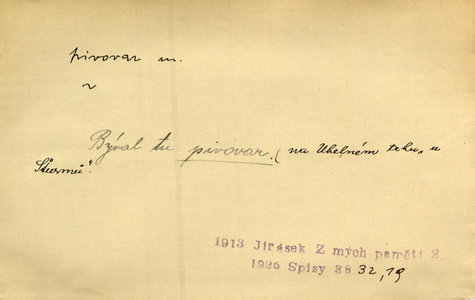 pivovar m.
~
Býval tu pivovar. (na Uhelném trhu, u
Šturmů".
1913 Jirásek Z mých pamětí 2.
1925 Spisy 38 32,19